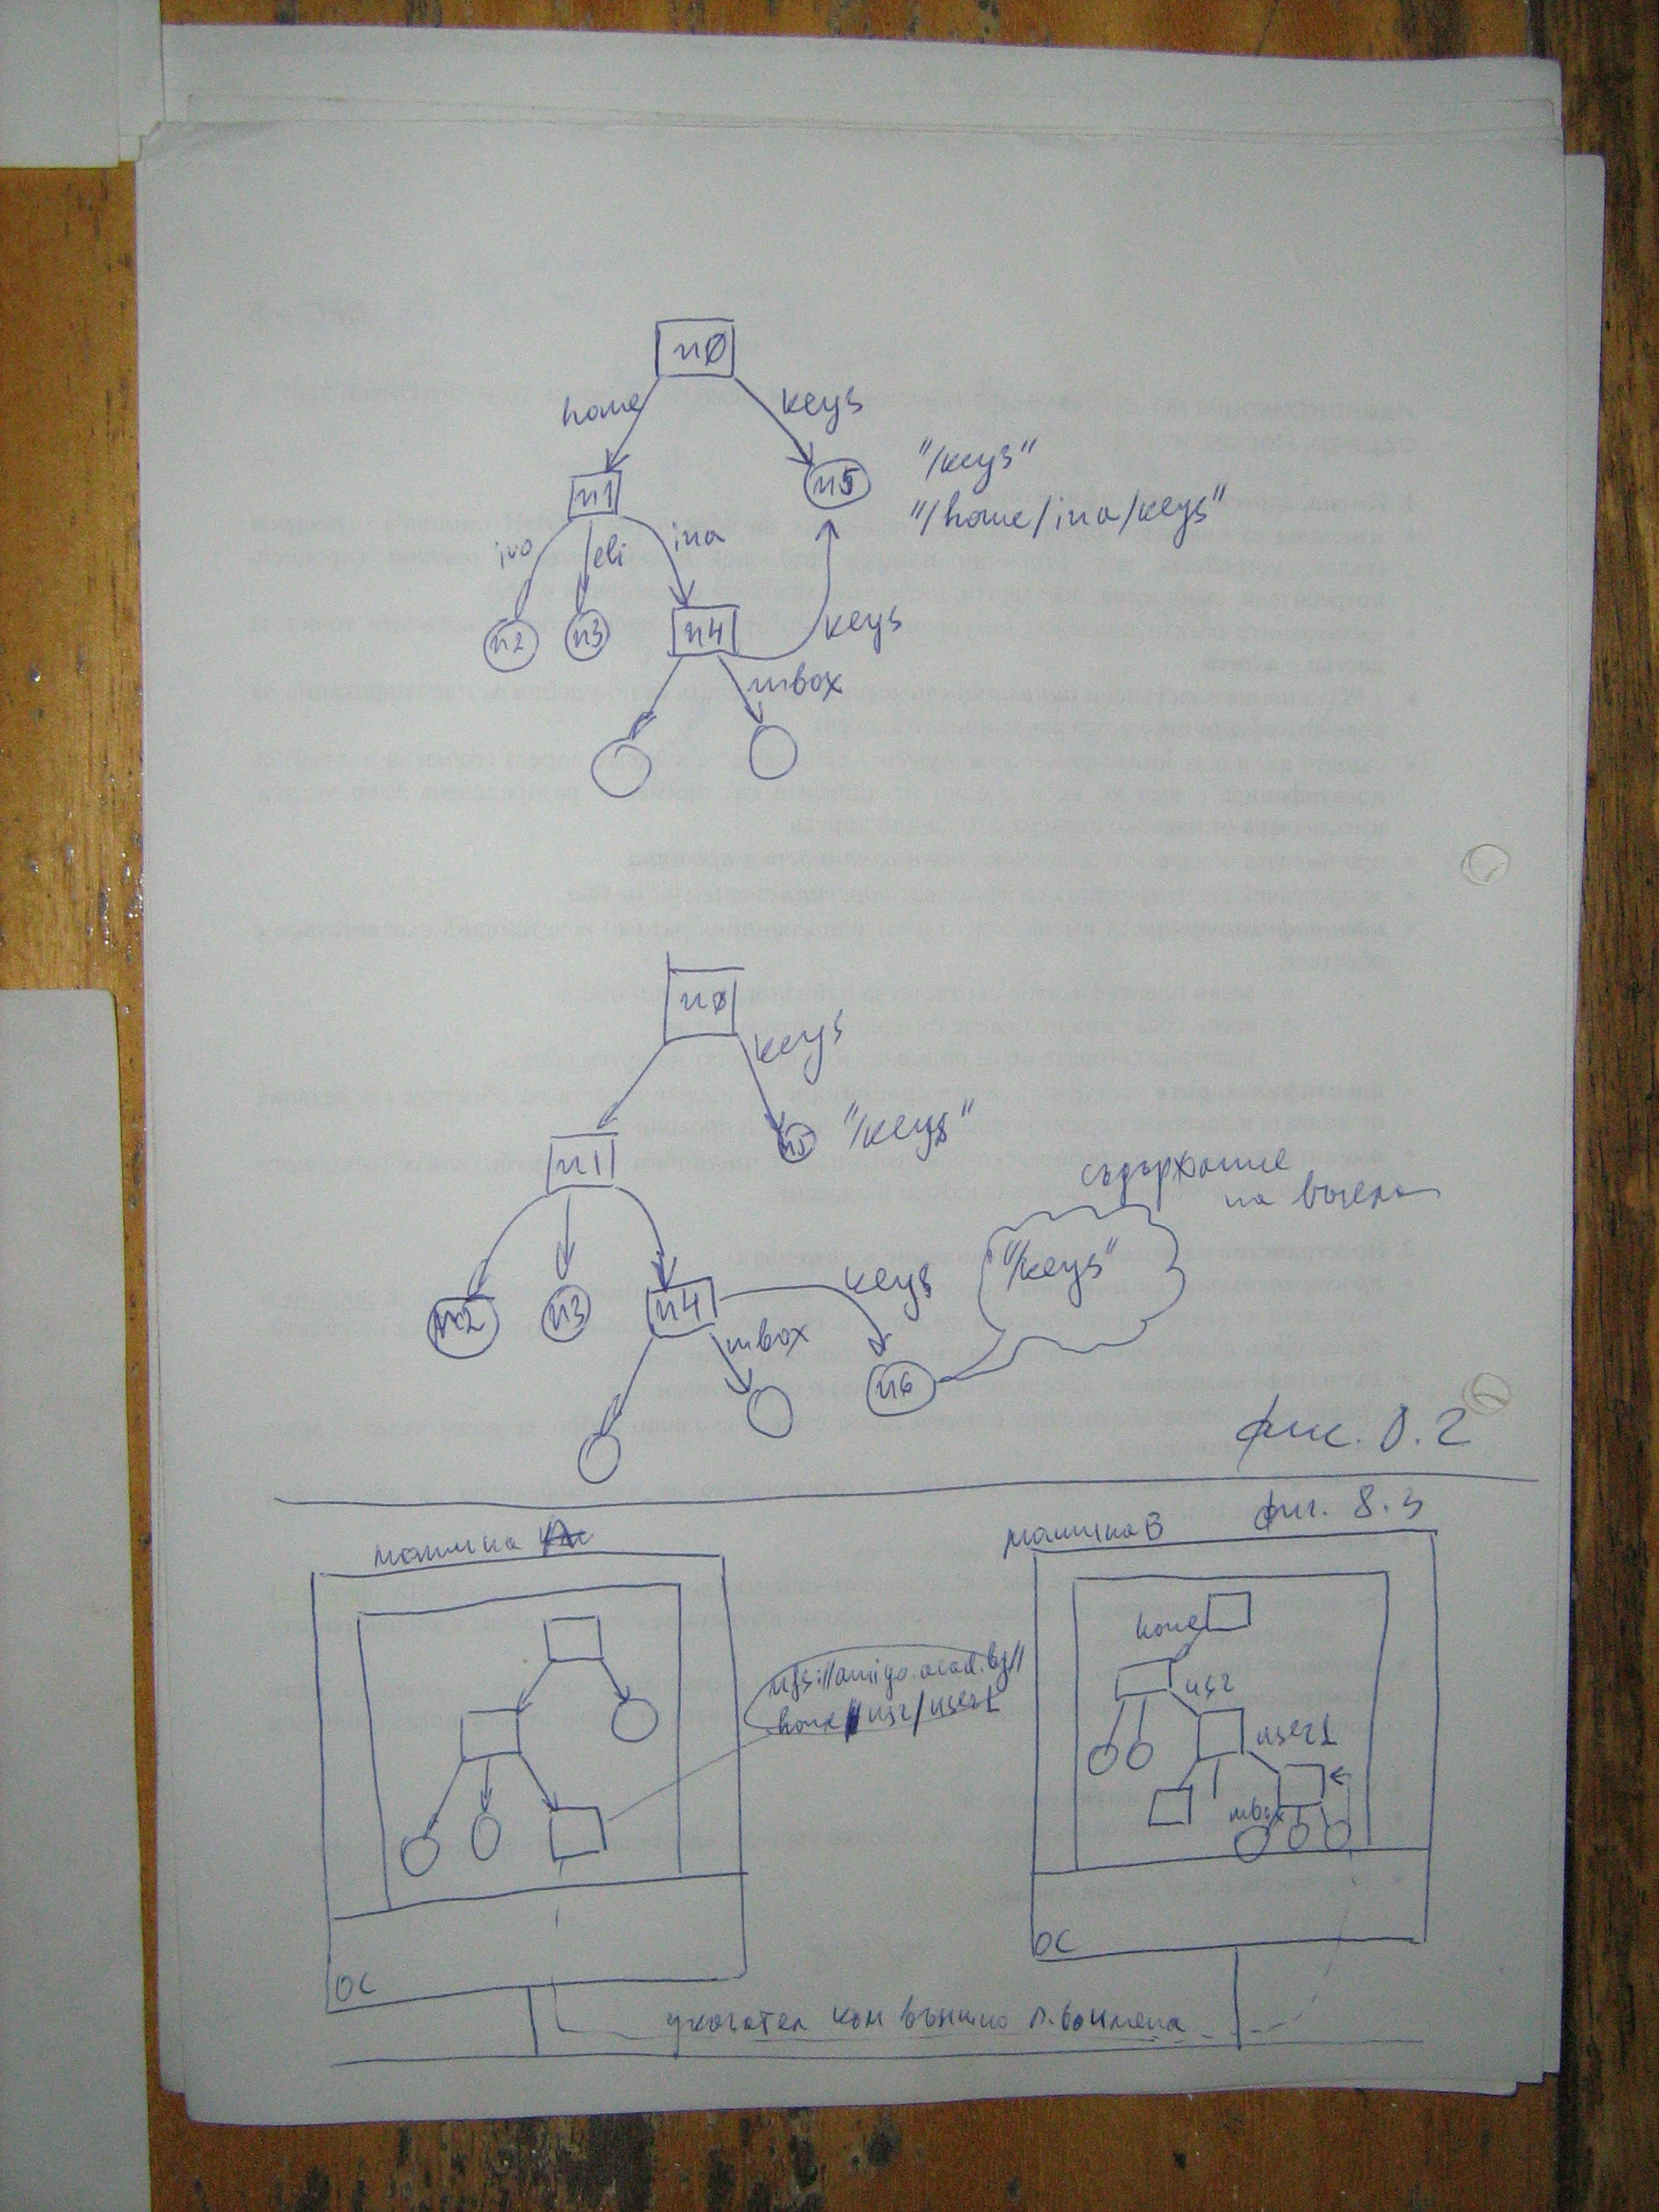 n0
home
keys
n1
n5
"/keys"
"/home/ina/keys"
ivo
eli
ina
n2
n3
n4
keys
mbox
n0
keys
n1
n5
"/keys"
съдържание
на възела
n2
n3
n4
keys
"/keys"
mbox
n6
фиг. 8.2
фиг. 8.3
машина
машина B
home
nfs://amigo.acad.bg//
home/usr/user1
usr
user1
mbox
ОС
ОС
указател към външно п. во имена